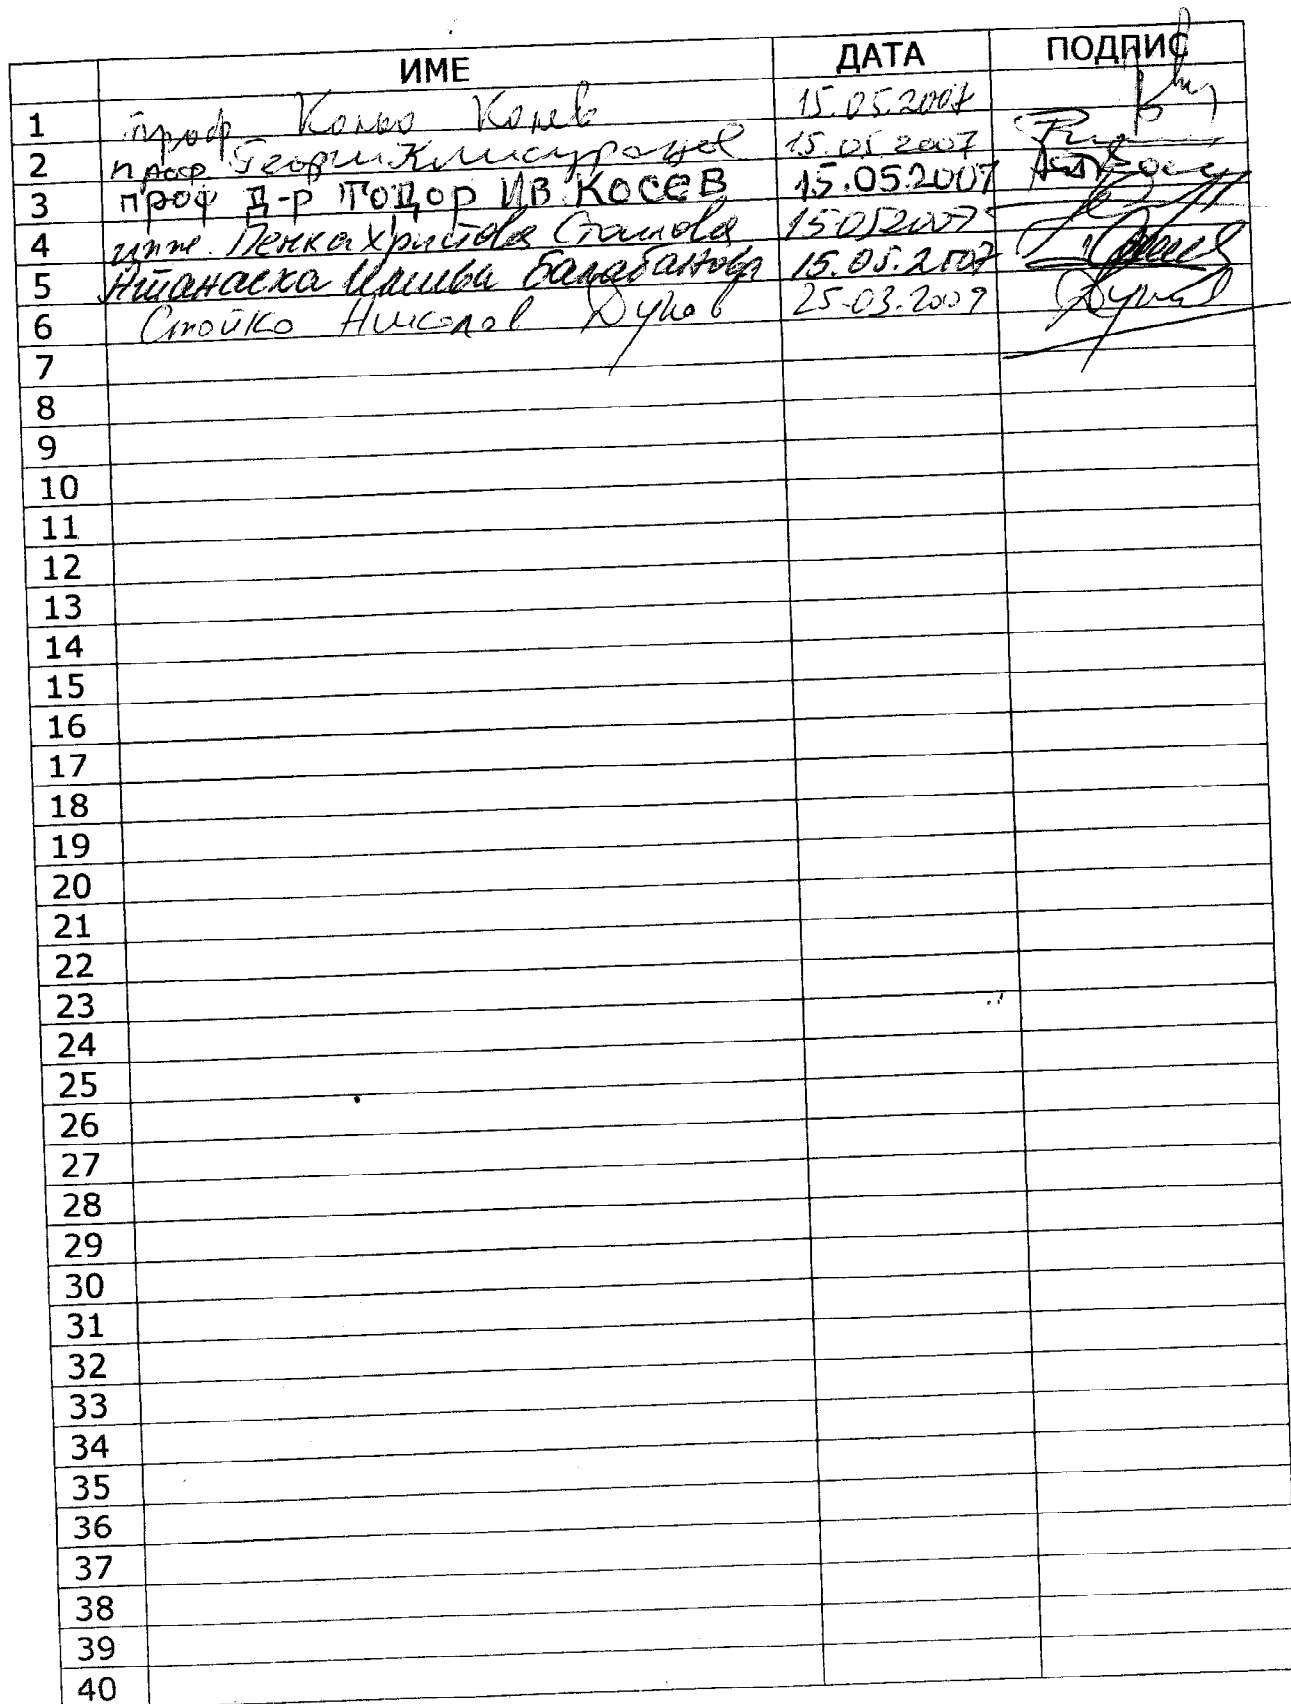 ИМЕ ДАТА ПОДПИС
1 проф. Кольо Колев 15.05.2007
2 проф. Георги Клисуранов 15.05.2007
3 проф Д-р ТОДОР ИВ. КОСЕВ 15.05.2007
4 инж. Пенка Христова Станова 15052007
5 Атанаска Илиева Балабанова 15.05.2007
6 Стойко Николов Дунов 25.03.2009
7
8
9
10
11
12
13
14
15
16
17
18
19
20
21
22
23
24
25
26
27
28
29
30
31
32
33
34
35
36
37
38
39
40